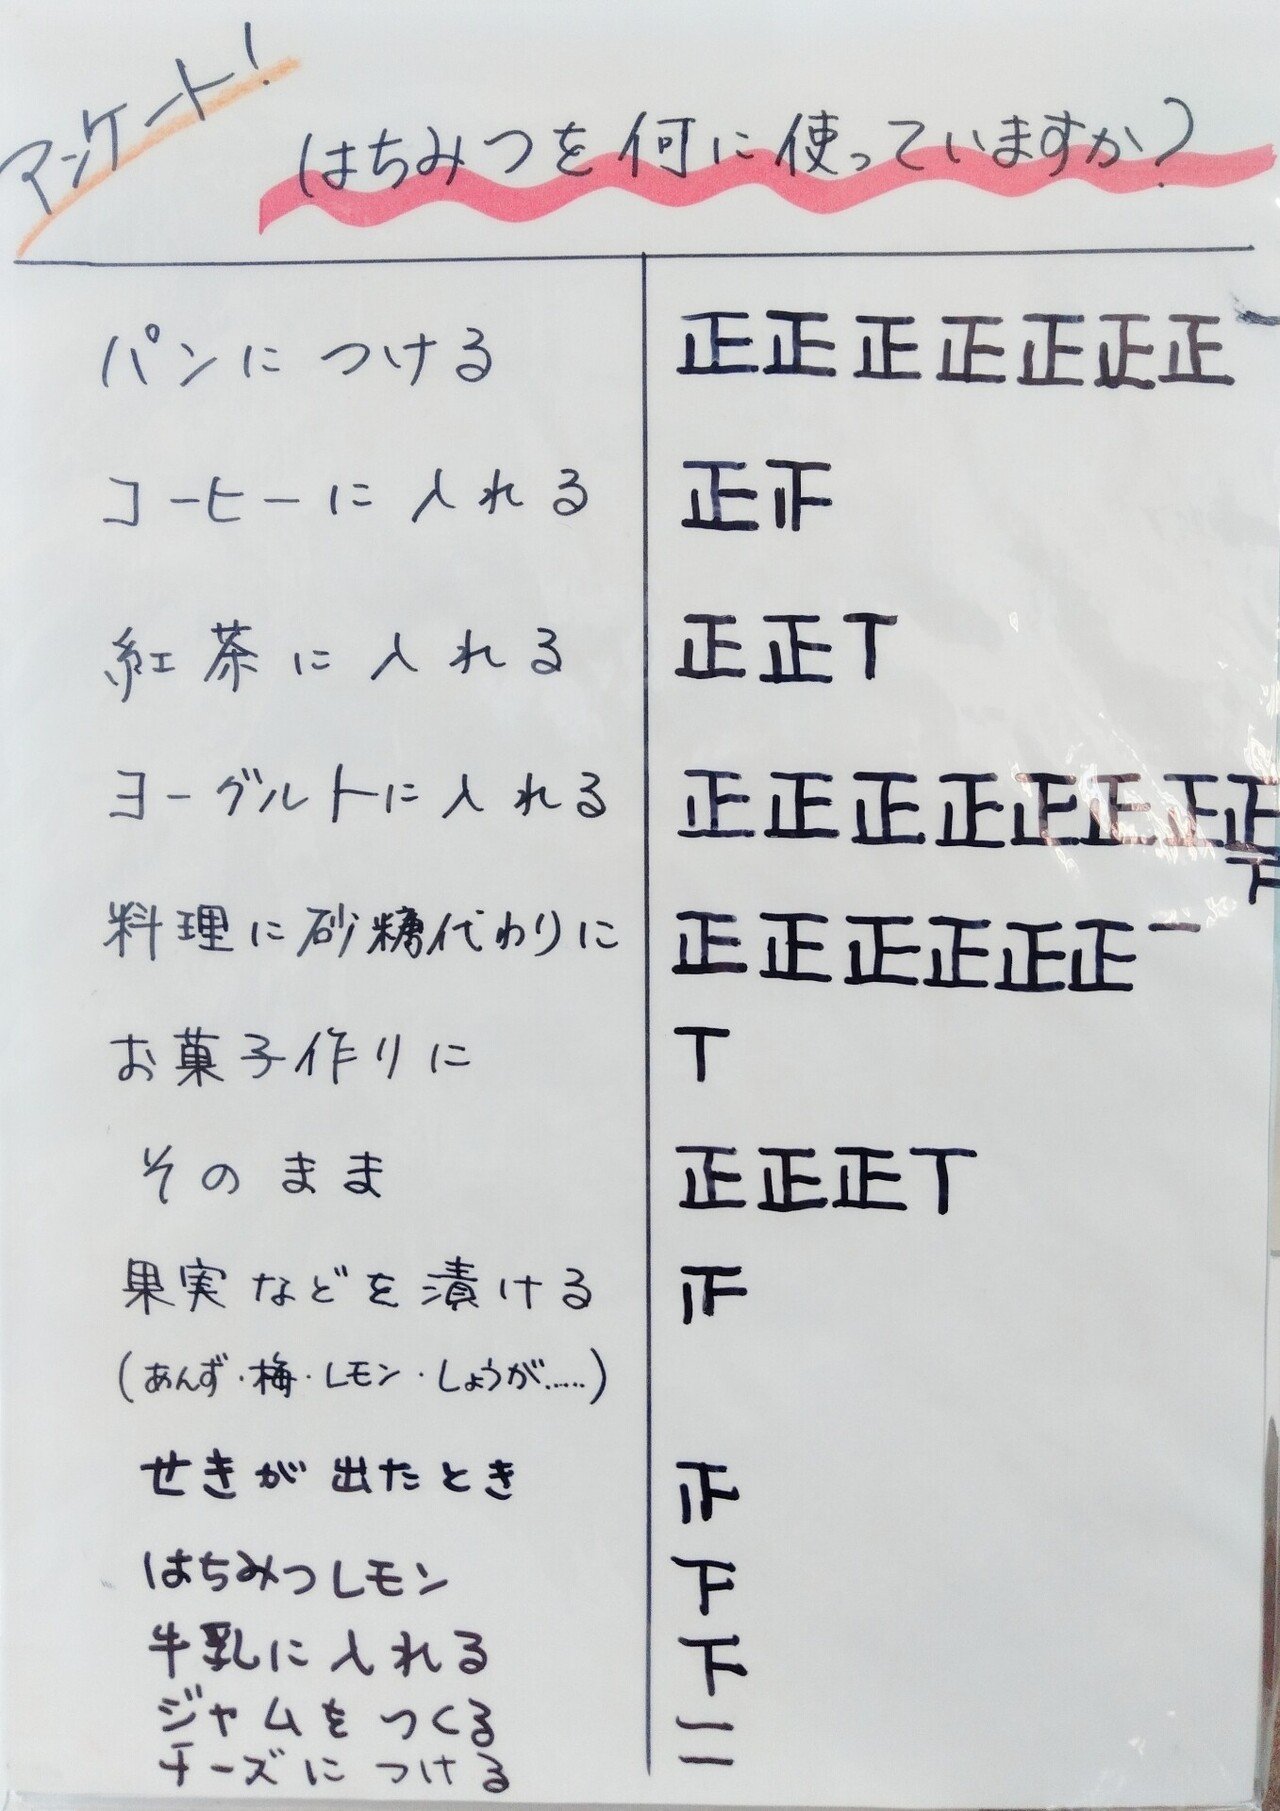 アンケート!
はちみつを何に使っていますか?
パンにつける 正正正正正正正一
コーヒーに入れる 正𝍵
紅茶に入れる 正正T
ヨーグルトに入れる 正正正正正正正正
下
料理に砂糖代わりに 正正正正正正一
お菓子作りに T
そのまま 正正正T
果実などを漬ける 𝍵
(あんず・梅・レモン・しょうが……)
せきが出たとき 𝍵
はちみつレモン 下
牛乳に入れる 下
ジャムをつくる 一
チーズにつける 一